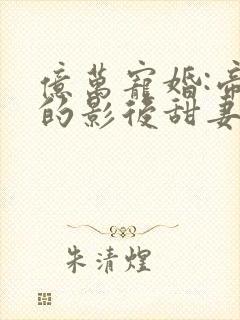 億萬寵婚:帝
的影後甜妻
朱清煌